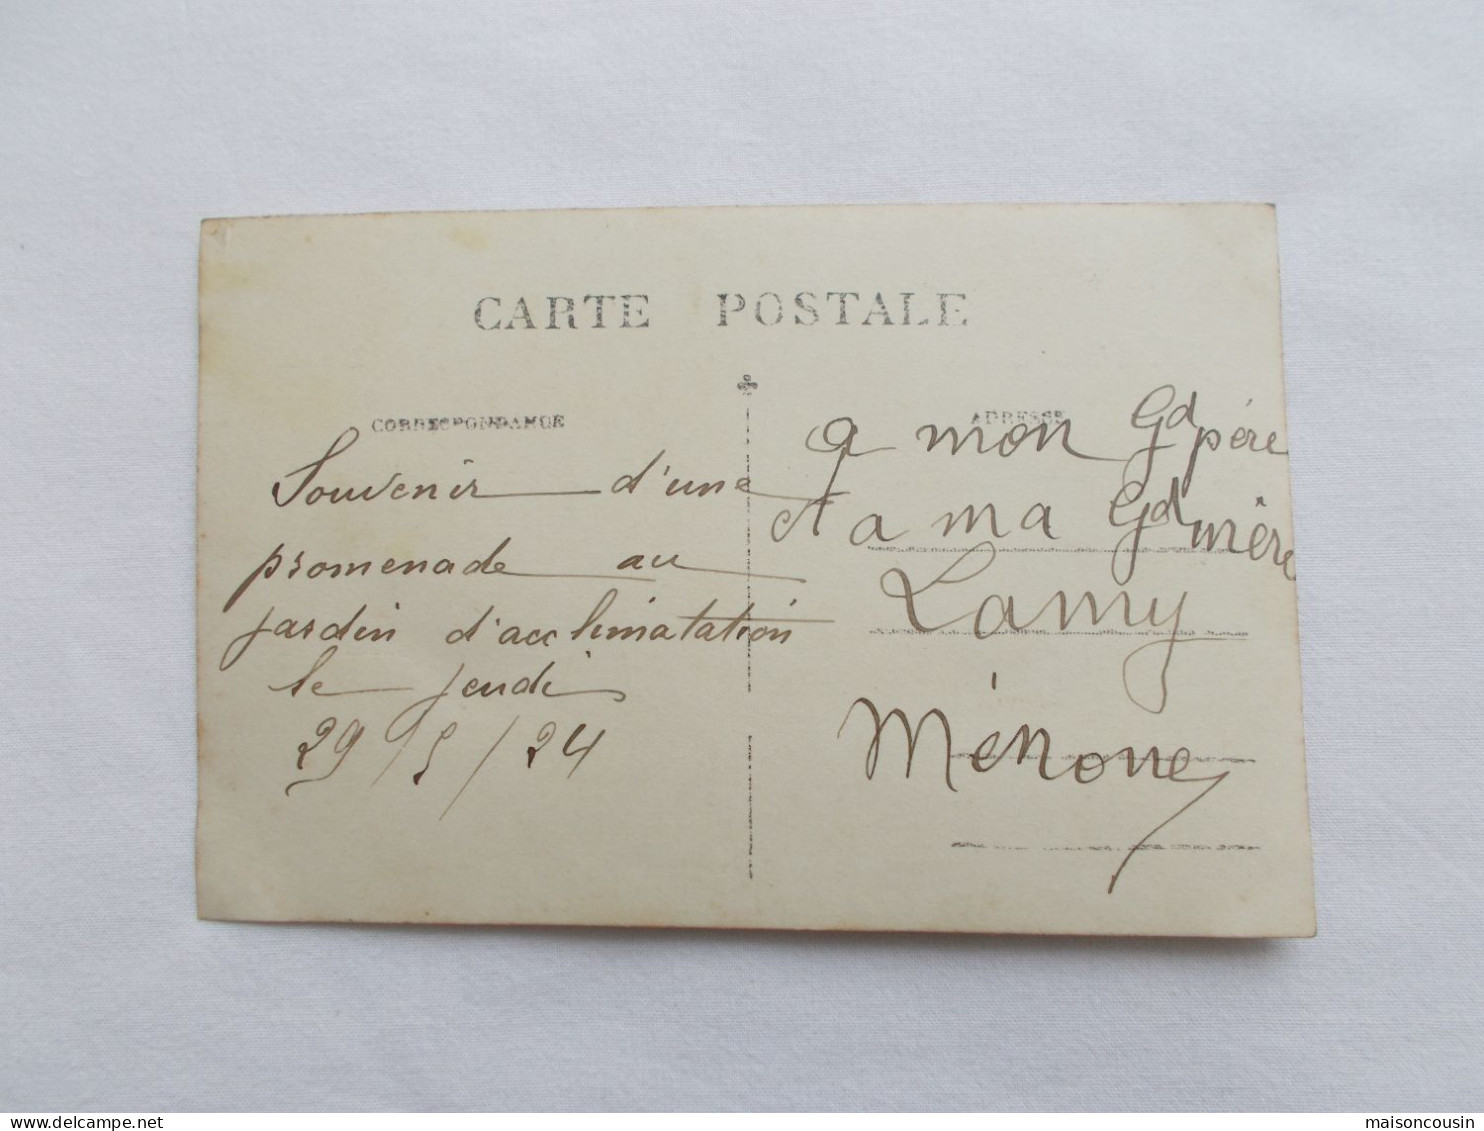 CARTE POSTALE
CORRESPONDANCE
Souvenir d'une
promenade au
jardin d'acclimatation
le jeudi
29/5/24
ADRESSE
A mon Gd père
et a ma Gd mère
Lamy
Ménone
maisoncousin